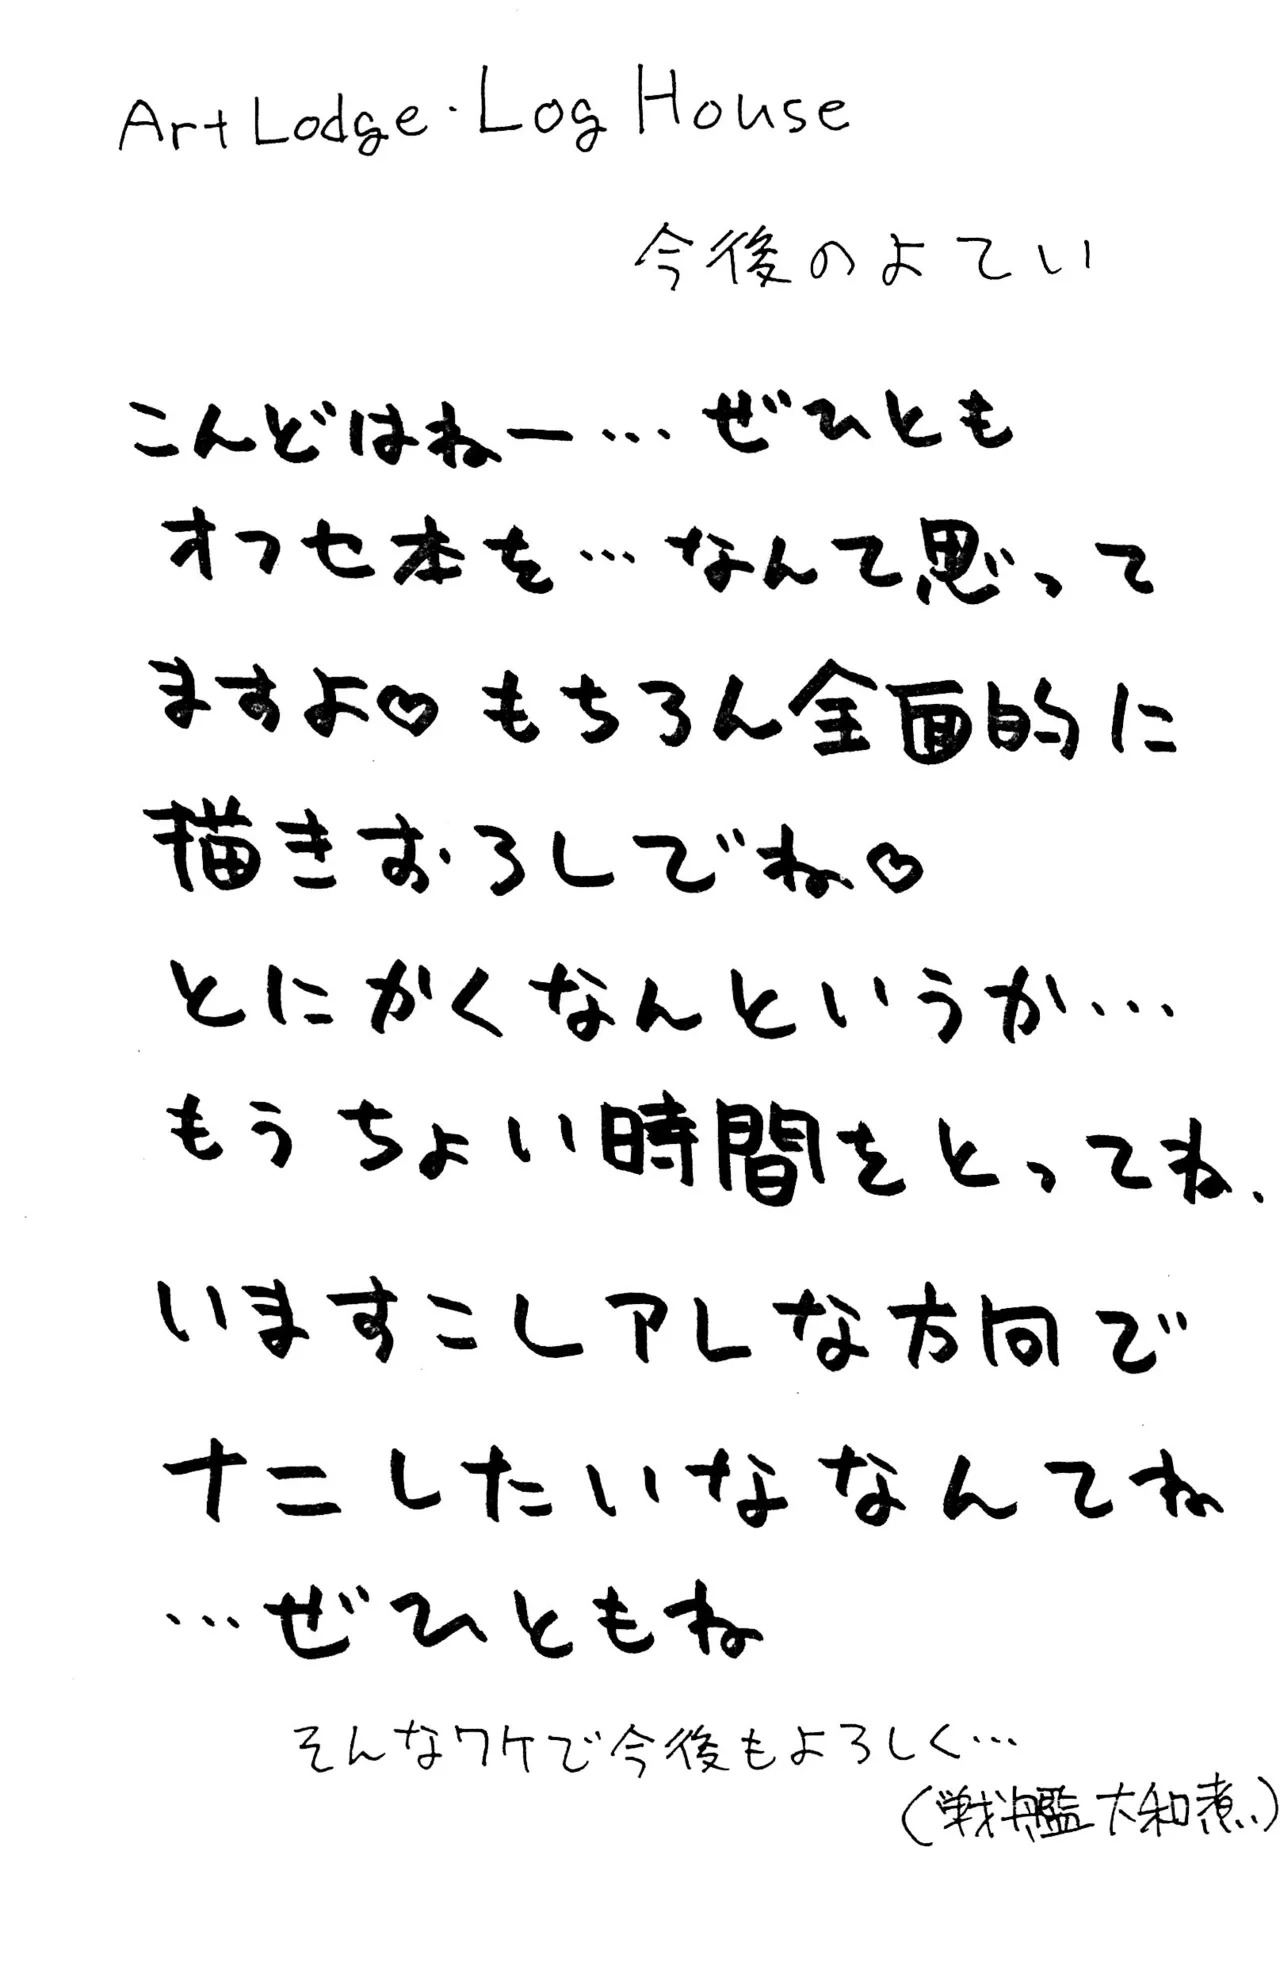 Art Lodge・Log House
今後のよてい
こんどはねー…ぜひとも
オフセ本を…なんて思って
ますよ♡もちろん全面的に
描きおろしでね♡
とにかくなんというか…
もうちょい時間をとってね、
いますこしアレな方向で
ナニしたいななんてね
…ぜひともね
そんなワケで今後もよろしく…
(戦艦大和煮)